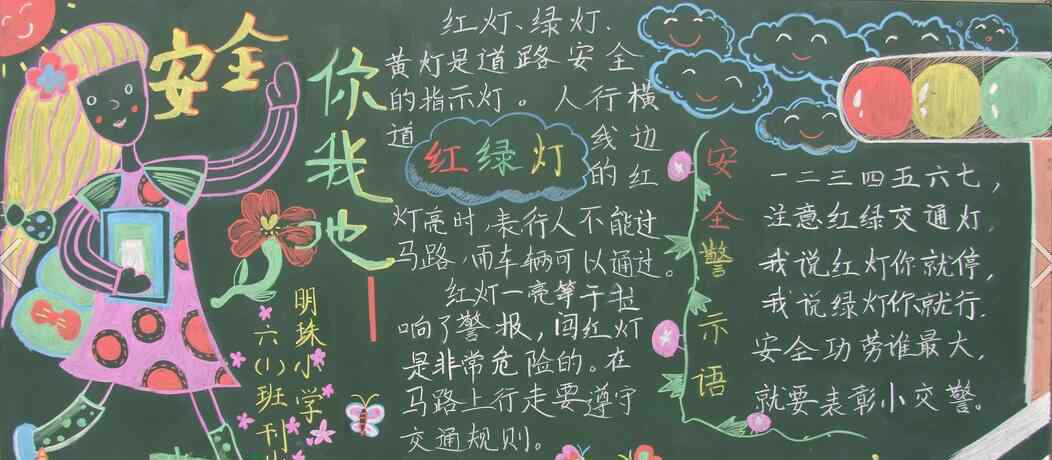 安全
你我他
明珠小学
六(1)班刊
红灯、绿灯、
黄灯是道路安全
的指示灯。人行横
道线边
红绿灯
的红
灯亮时，表行人不能过
马路，而车辆可以通过。
红灯一亮等于拉
响了警报，闯红灯
是非常危险的。在
马路上行走要遵守
交通规则。
安全警示语
一二三四五六七，
注意红绿交通灯，
我说红灯你就停，
我说绿灯你就行.
安全功劳谁最大，
就要表彰小交警。